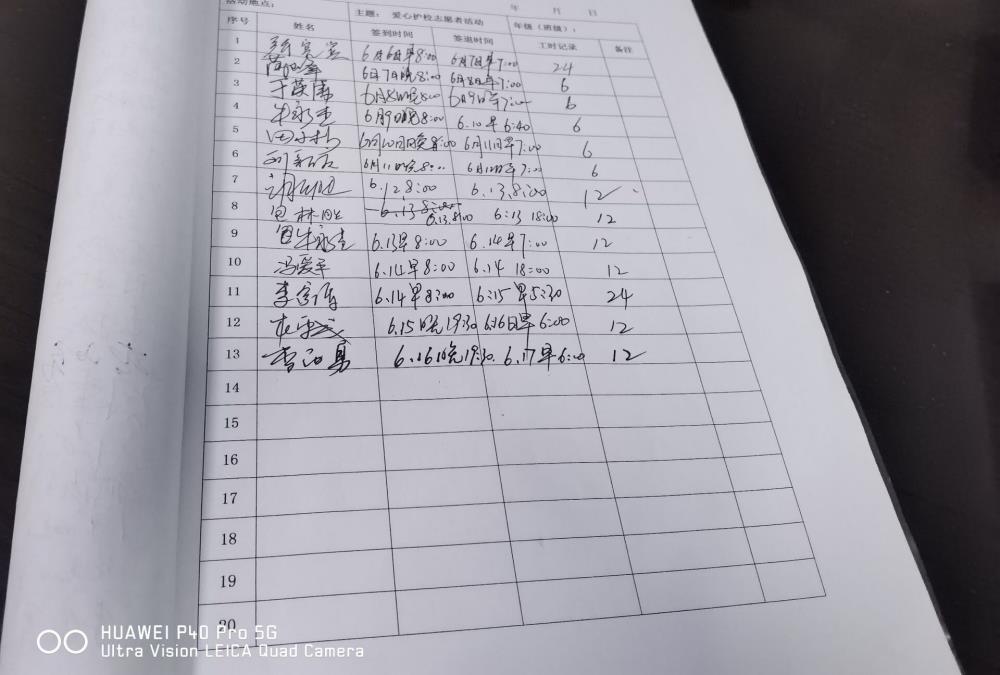 活动地点： 年 月 日
主题： 爱心护校志愿者活动 年级（班级）：
序号 姓名 签到时间 签退时间 工时记录 备注
1 6月6日早8:00 6月7日早7:00 24
2 6月7日晚8:00 6月8日早7:00 6
3 6月8日晚8:00 6月9日早7:00 6
4 牛永生 6月9日晚8:00 6.10早6:40 6
5 6月10日晚8:00 6月11日早7:00 6
6 6月11日晚8:00 6月12日早7:00 6
7 6.12 8:00 6.13.8:00 12
8 6.13.8:00 6:13 18:00 12
9 牛永生 6.13早8:00 6.14早7:00 12
10 冯爱平 6.14早8:00 6.14 18:00 12
11 6.14早8:00 6:15早5:30 24
12 6.15晚19:30 6.16日早6:00 12
13 6.16晚19:30. 6.17早6:00 12
14
15
16
17
18
19
20
HUAWEI P40 Pro 5G
Ultra Vision LEICA Quad Camera